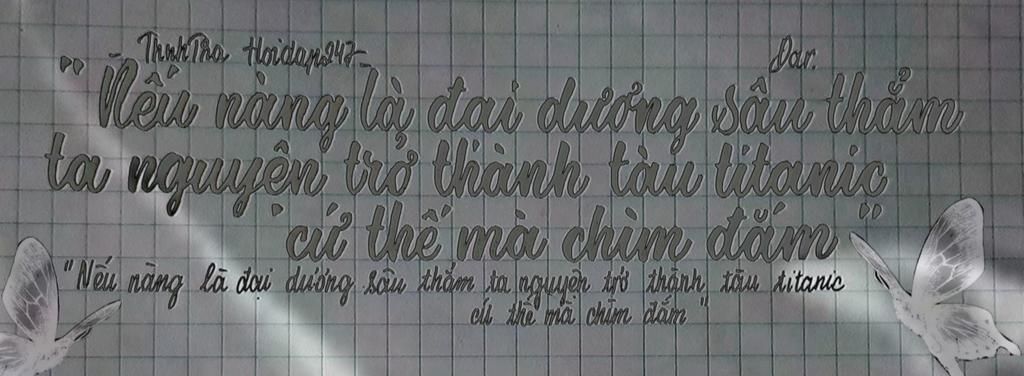 ThnhTra Hoidap247
Dar.
"Nếu nàng là đại dương sâu thẳm
ta nguyện trở thành tàu titanic
cứ thế mà chìm đắm"
"Nếu nàng là đại dương sâu thẳm ta nguyện trở thành tàu titanic
cứ thế mà chìm đắm"